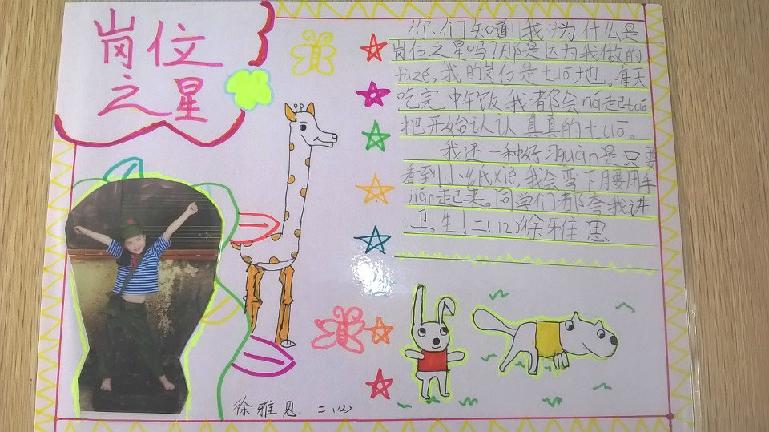 岗位
之星
你们知道我为什么是
岗位之星吗?那是因为我做的
我的岗位是tuō地。每天
吃完中午饭,我都会ná起tuō
把开始认认真真的tuō。
我还一种好 是只要
看到小纸 我会弯下月要用手
起来。同学们都夸我讲
卫生!二(2)徐雅恩
徐雅恩 二(2)